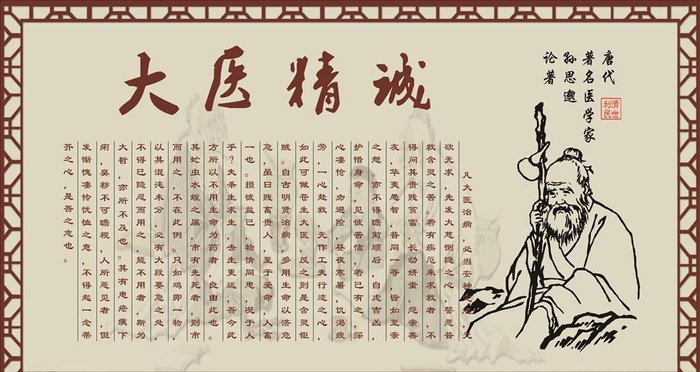 大医精诚
唐代
著名医学家
孙思邈
论著
济世
利民
凡大医治病，必当安神，无
欲无求，先发大慈恻隐之心，誓愿普
救含灵之苦。若有疾厄来求救者，不
得问其贵贱贫富，长幼妍蚩，怨亲善
友，华夷愚智，普同一等，皆如至亲
之想，亦不得瞻前顾后，自虑吉凶，
护惜身命，见彼苦恼，若己有之，深
心凄怆，勿避险，昼夜寒暑，饥渴疲
劳，一心赴救，无作工夫行迹之心，
如此可做苍生大医，反之则是含灵钜
贼。自古明贤治病，多用生命以济危
急，虽曰贱畜贵人，至于爱命，人畜
一也。损彼益己，物情同患，况于人
乎？夫杀生求生，去生更远，吾今此
方所以不用生命为药者，良由此也。
其虻虫水蛭之属，市有先死者，则市
而用之，不在此例。只如鸡卵一物，
以其混沌未分，必有大段要急之处，
不得已隐忍而用之，能不用者，斯为
大哲，亦所不及也。其有患疮痍下
痢，臭秽不可瞻视，人所恶见者，但
发惭愧凄怜忧恤之意，不得起一念蒂
芥之心，是吾之志也。